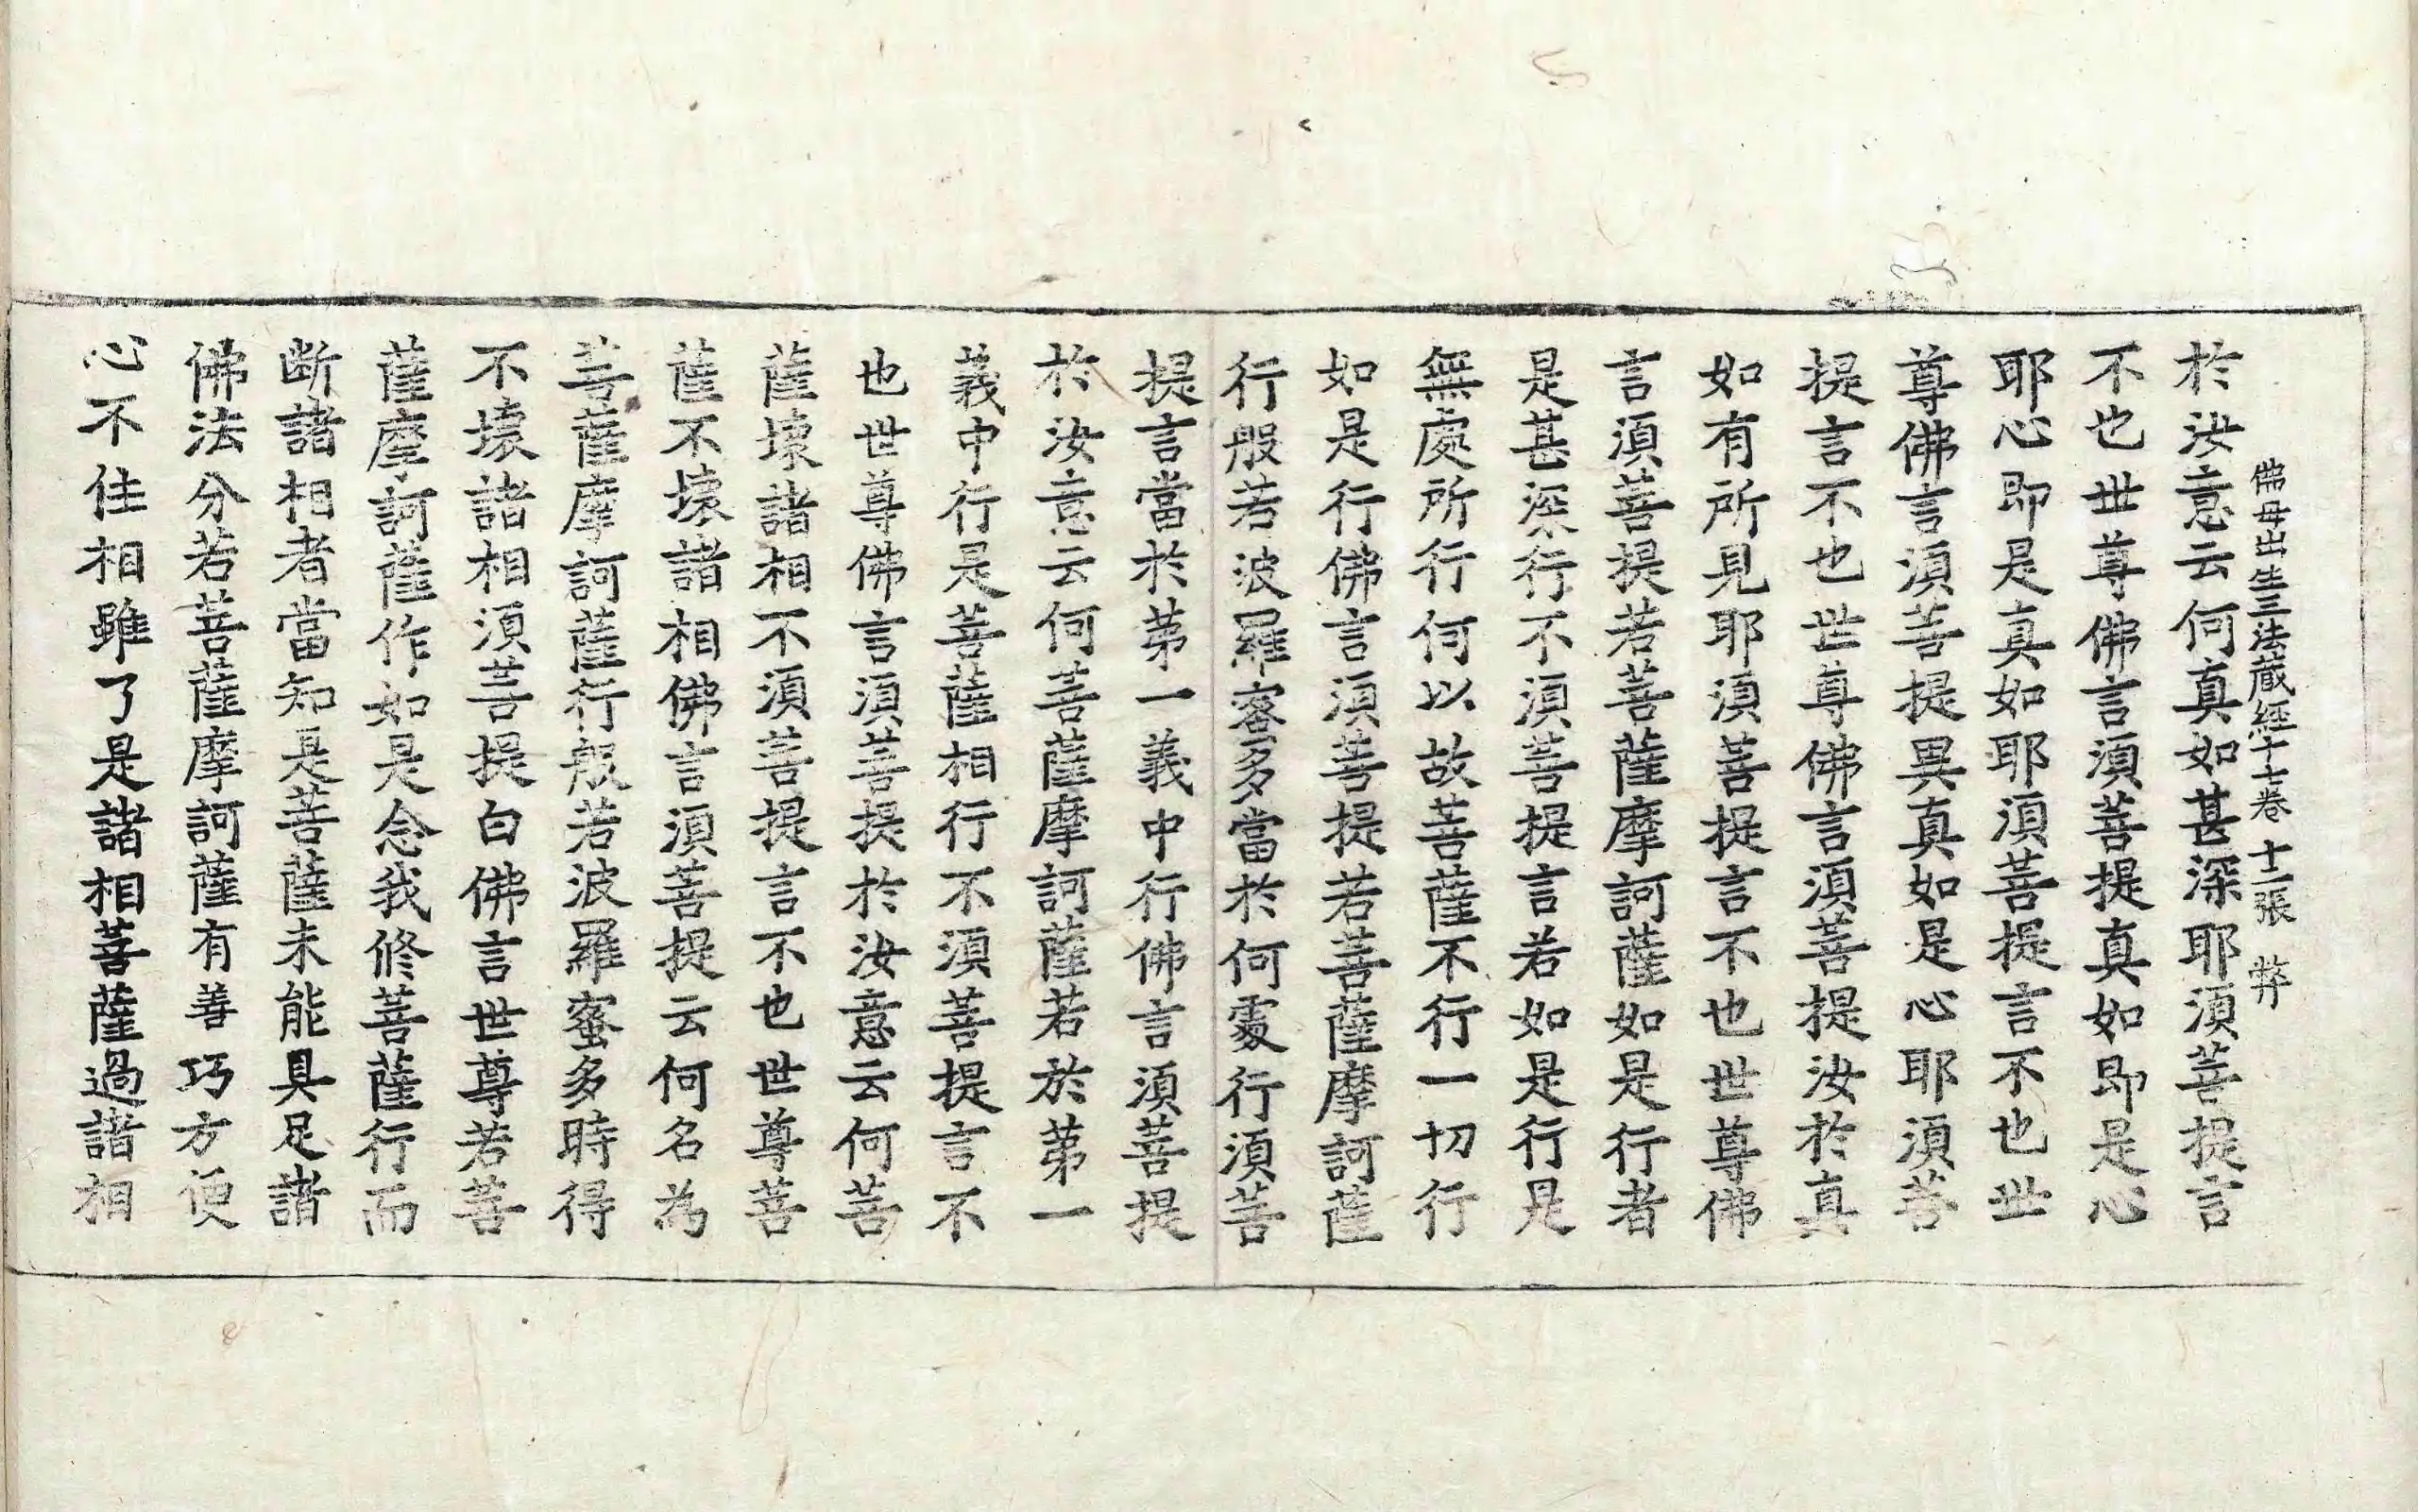 佛母出生三法藏經十七卷 十二張 弊
於汝意云何真如甚深耶須菩提言
不也世尊佛言須菩提真如即是心
耶心即是真如耶須菩提言不也世
尊佛言須菩提異真如是心耶須菩
提言不也世尊佛言須菩提汝於真
如有所見耶須菩提言不也世尊佛
言須菩提若菩薩摩訶薩如是行者
是甚深行不須菩提言若如是行是
無處所行何以故菩薩不行一切行
如是行佛言須菩提若菩薩摩訶薩
行般若波羅蜜多當於何處行須菩
提言當於第一義中行佛言須菩提
於汝意云何菩薩摩訶薩若於第一
義中行是菩薩相行不須菩提言不
也世尊佛言須菩提於汝意云何菩
薩壞諸相不須菩提言不也世尊菩
薩不壞諸相佛言須菩提云何名為
菩薩摩訶薩行般若波羅蜜多時得
不壞諸相須菩提白佛言世尊若菩
薩摩訶薩作如是念我修菩薩行而
斷諸相者當知是菩薩未能具足諸
佛法分若菩薩摩訶薩有善巧方便
心不住相雖了是諸相菩薩過諸相